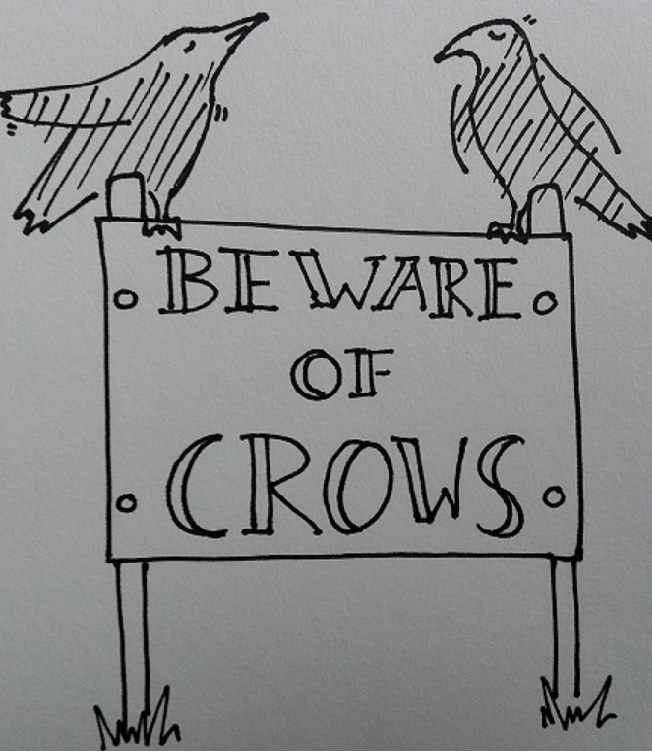 BEWARE
OF
CROWS